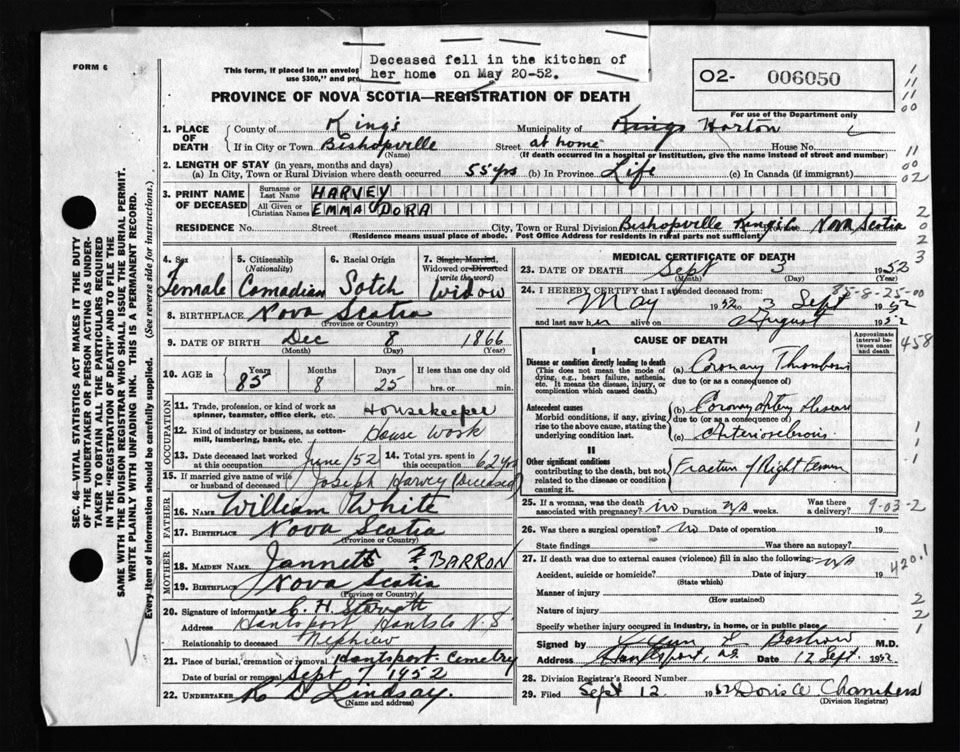 FORM 6
This form, if placed in an envelop
use $300," and pr
Deceased fell in the kitchen of
her home on May 20-52.
O2- 006050
For use of the Department only
PROVINCE OF NOVA SCOTIA—REGISTRATION OF DEATH
1. PLACE OF DEATH
County of Kings Municipality of Kings Horton
If in City or Town Bishopville Street at home House No.
(Name) (If death occurred in a hospital or institution, give the name instead of street and number)
2. LENGTH OF STAY (in years, months and days)
(a) In City, Town or Rural Division where death occurred 55 yrs (b) In Province Life (c) In Canada (if immigrant)
3. PRINT NAME OF DECEASED
Surname or Last Name HARVEY
All Given or Christian Names EMMA DORA
RESIDENCE No. Street City, Town or Rural Division Bishopville Nova Scotia
(Residence means usual place of abode. Post Office Address for residents in rural parts not sufficient)
4. Sex Female
5. Citizenship (Nationality) Canadian
6. Racial Origin Sotch
7. Single, Married, Widowed or Divorced (write the word) Widow
8. BIRTHPLACE Nova Scotia
(Province or Country)
9. DATE OF BIRTH Dec 8 1866
(Month) (Day) (Year)
10. AGE in Years 85 Months 8 Days 25 If less than one day old hrs. or min.
OCCUPATION
11. Trade, profession, or kind of work as spinner, teamster, office clerk, etc. Housekeeper
12. Kind of industry or business, as cotton-mill, lumbering, bank, etc. House Work
13. Date deceased last worked at this occupation June/52
14. Total yrs. spent in this occupation 62 yrs
15. If married give name of wife or husband of deceased Joseph Harvey (Deceased)
FATHER
16. NAME William White
17. BIRTHPLACE Nova Scotia
(Province or Country)
MOTHER
18. MAIDEN NAME Jannett ? BARRON
19. BIRTHPLACE Nova Scotia
(Province or Country)
20. Signature of informant C. H.
Address Hantsport Hants Co N.S
Relationship to deceased Nephiew
21. Place of burial, cremation or removal Hantsport Cemetry
Date of burial or removal Sept 7 1952
22. UNDERTAKER K D Lindsay.
(Name and address)
MEDICAL CERTIFICATE OF DEATH
23. DATE OF DEATH Sept 3 1952
(Month) (Day) (Year)
85-8-25-00
24. I HEREBY CERTIFY that I attended deceased from
May 1952 3 Sept 1952
and last saw her alive on August 1952
CAUSE OF DEATH
Approximate interval between onset and death
I
Disease or condition directly leading to death
(This does not mean the mode of dying, e.g., heart failure, asthenia, etc. It means the disease, injury, or complication which caused death.)
(a) Coronary Thrombosis
due to (or as a consequence of)
Antecedent causes
Morbid conditions, if any, giving rise to the above cause, stating the underlying condition last.
(b) Coronary Artery Disease
due to (or as a consequence of)
(c)
II
Other significant conditions
contributing to the death, but not related to the disease or condition causing it.
Fracture of Right Femur
25. If a woman, was the death associated with pregnancy? no Duration Was there a delivery?
9-03-2
26. Was there a surgical operation? no Date of operation 19
State findings Was there an autopsy?
27. If death was due to external causes (violence) fill in also the following:
Accident, suicide or homicide? Date of injury 19
(State which)
Manner of injury
(How sustained)
Nature of injury
Specify whether injury occurred in industry, in home, or in public place
Signed by M.D.
Address Hantsport, N.S. Date 12 Sept. 1952
28. Division Registrar's Record Number
29. Filed Sept 12 1952 Doris W. Chambers
(Division Registrar)
458
420.1
SEC. 46—VITAL STATISTICS ACT MAKES IT THE DUTY
OF THE UNDERTAKER OR PERSON ACTING AS UNDER-
TAKER TO OBTAIN ALL THE PARTICULARS REQUIRED
IN THE "REGISTRATION OF DEATH" AND TO FILE THE
SAME WITH THE DIVISION REGISTRAR WHO SHALL ISSUE THE BURIAL PERMIT.
WRITE PLAINLY WITH UNFADING INK. THIS IS A PERMANENT RECORD.
Every item of information should be carefully supplied. (See reverse side for instructions.)